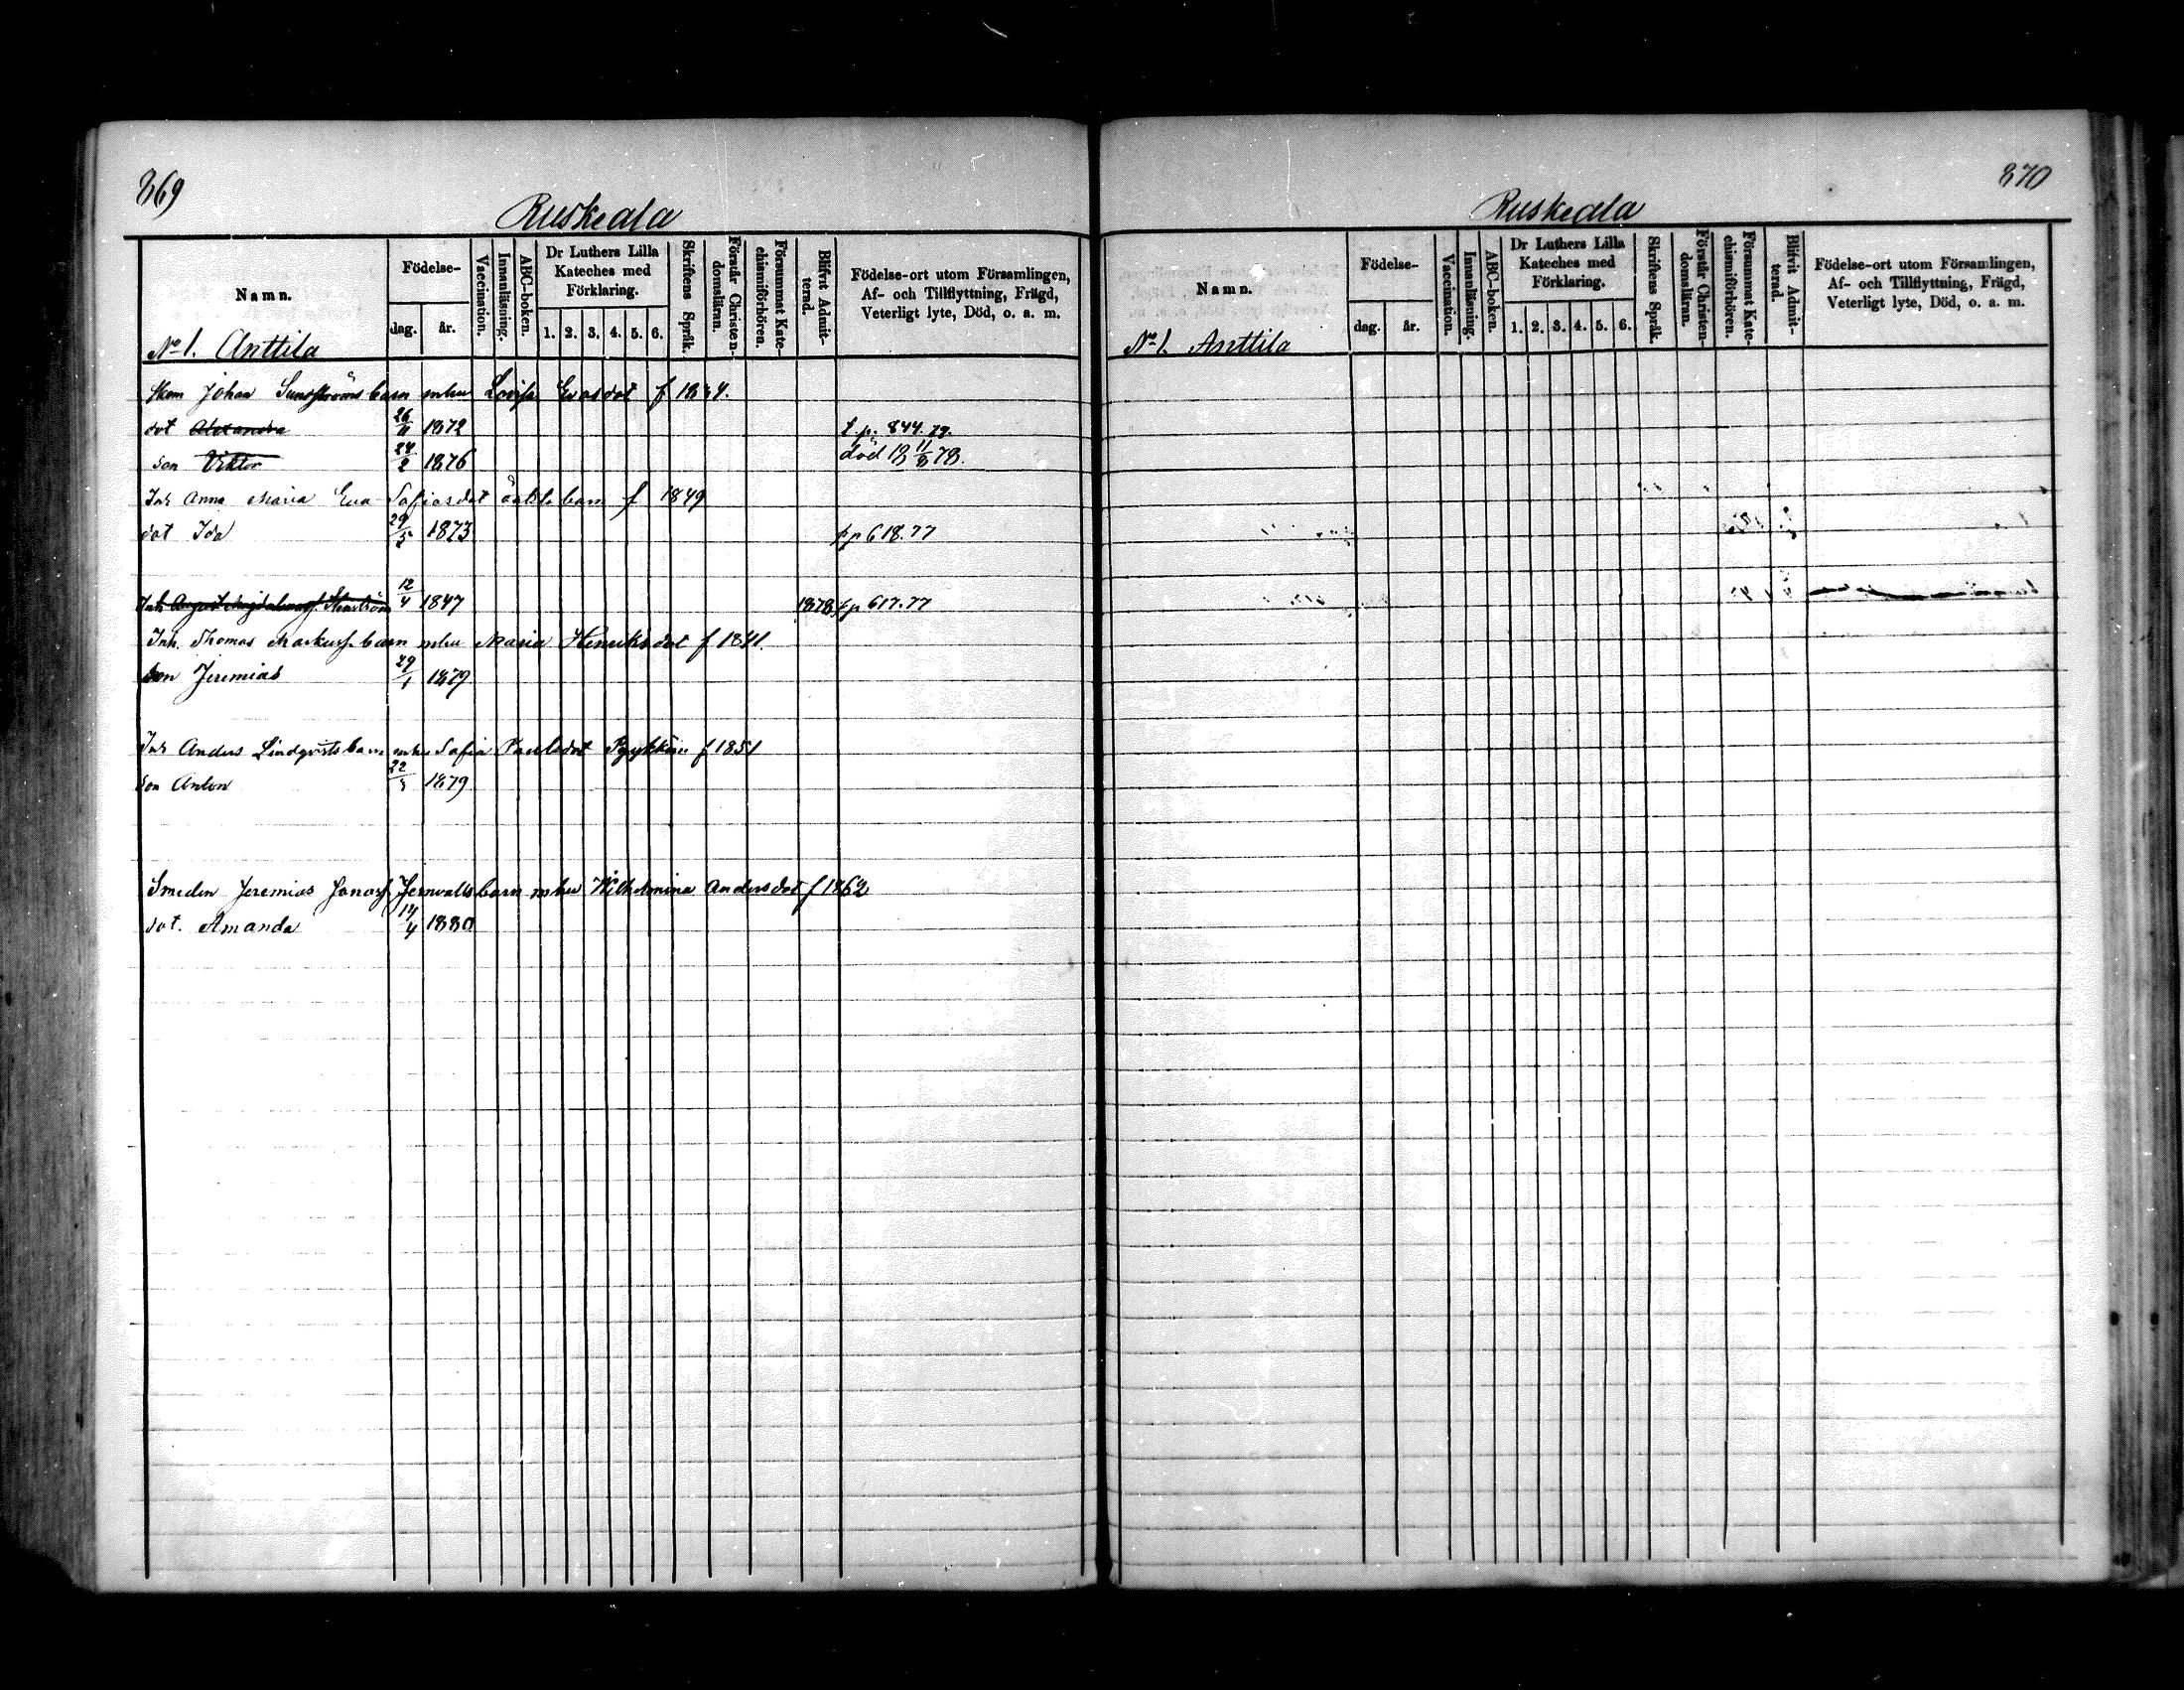 869
Ruskeala
Namn.
Födelse-
dag. år.
Vaccination.
Innanläsning.
ABC-boken.
Dr Luthers Lilla Kateches med Förklaring.
1. 2. 3. 4. 5. 6.
Skriftens Språk.
Förstår Christendomsläran.
Försummat Katechismiförhören.
Blifvit Admitterad.
Födelse-ort utom Församlingen,
Af- och Tillflyttning, Frägd,
Veterligt lyte, Död, o. a. m.
No 1. Anttila
Johan Sundströms barn mhu Lovisa Evasdot f
dot Alexandra 1872 t. p. 844. 79.
son Viktor 24/2 1876 död 18 11/8 78.
Inh Anna Maria Eva Sofiasdot barn f 1849
dot Ida 29/5 1873 pp 618. 77
Inh August 12/4 1847 1878 pp 617. 77
Inh. Thomas Markusf. barn mhu Maria Henriksdot f 1841.
son Jeremias 29/1 1879
Inh Anders Lindqvists barn mhu Sofia Paulsdot f 1851
son Anton 1879
Smeden Jeremias Jonasf. Jernvalls barn mhu Wilhelmina Andersdot f 1862
dot. Amanda 1880
870
Ruskeala
Namn.
Födelse-
dag. år.
Vaccination.
Innanläsning.
ABC-boken.
Dr Luthers Lilla Kateches med Förklaring.
1. 2. 3. 4. 5. 6.
Skriftens Språk.
Förstår Christendomsläran.
Försummat Katechismiförhören.
Blifvit Admitterad.
Födelse-ort utom Församlingen,
Af- och Tillflyttning, Frägd,
Veterligt lyte, Död, o. a. m.
No 1. Anttila